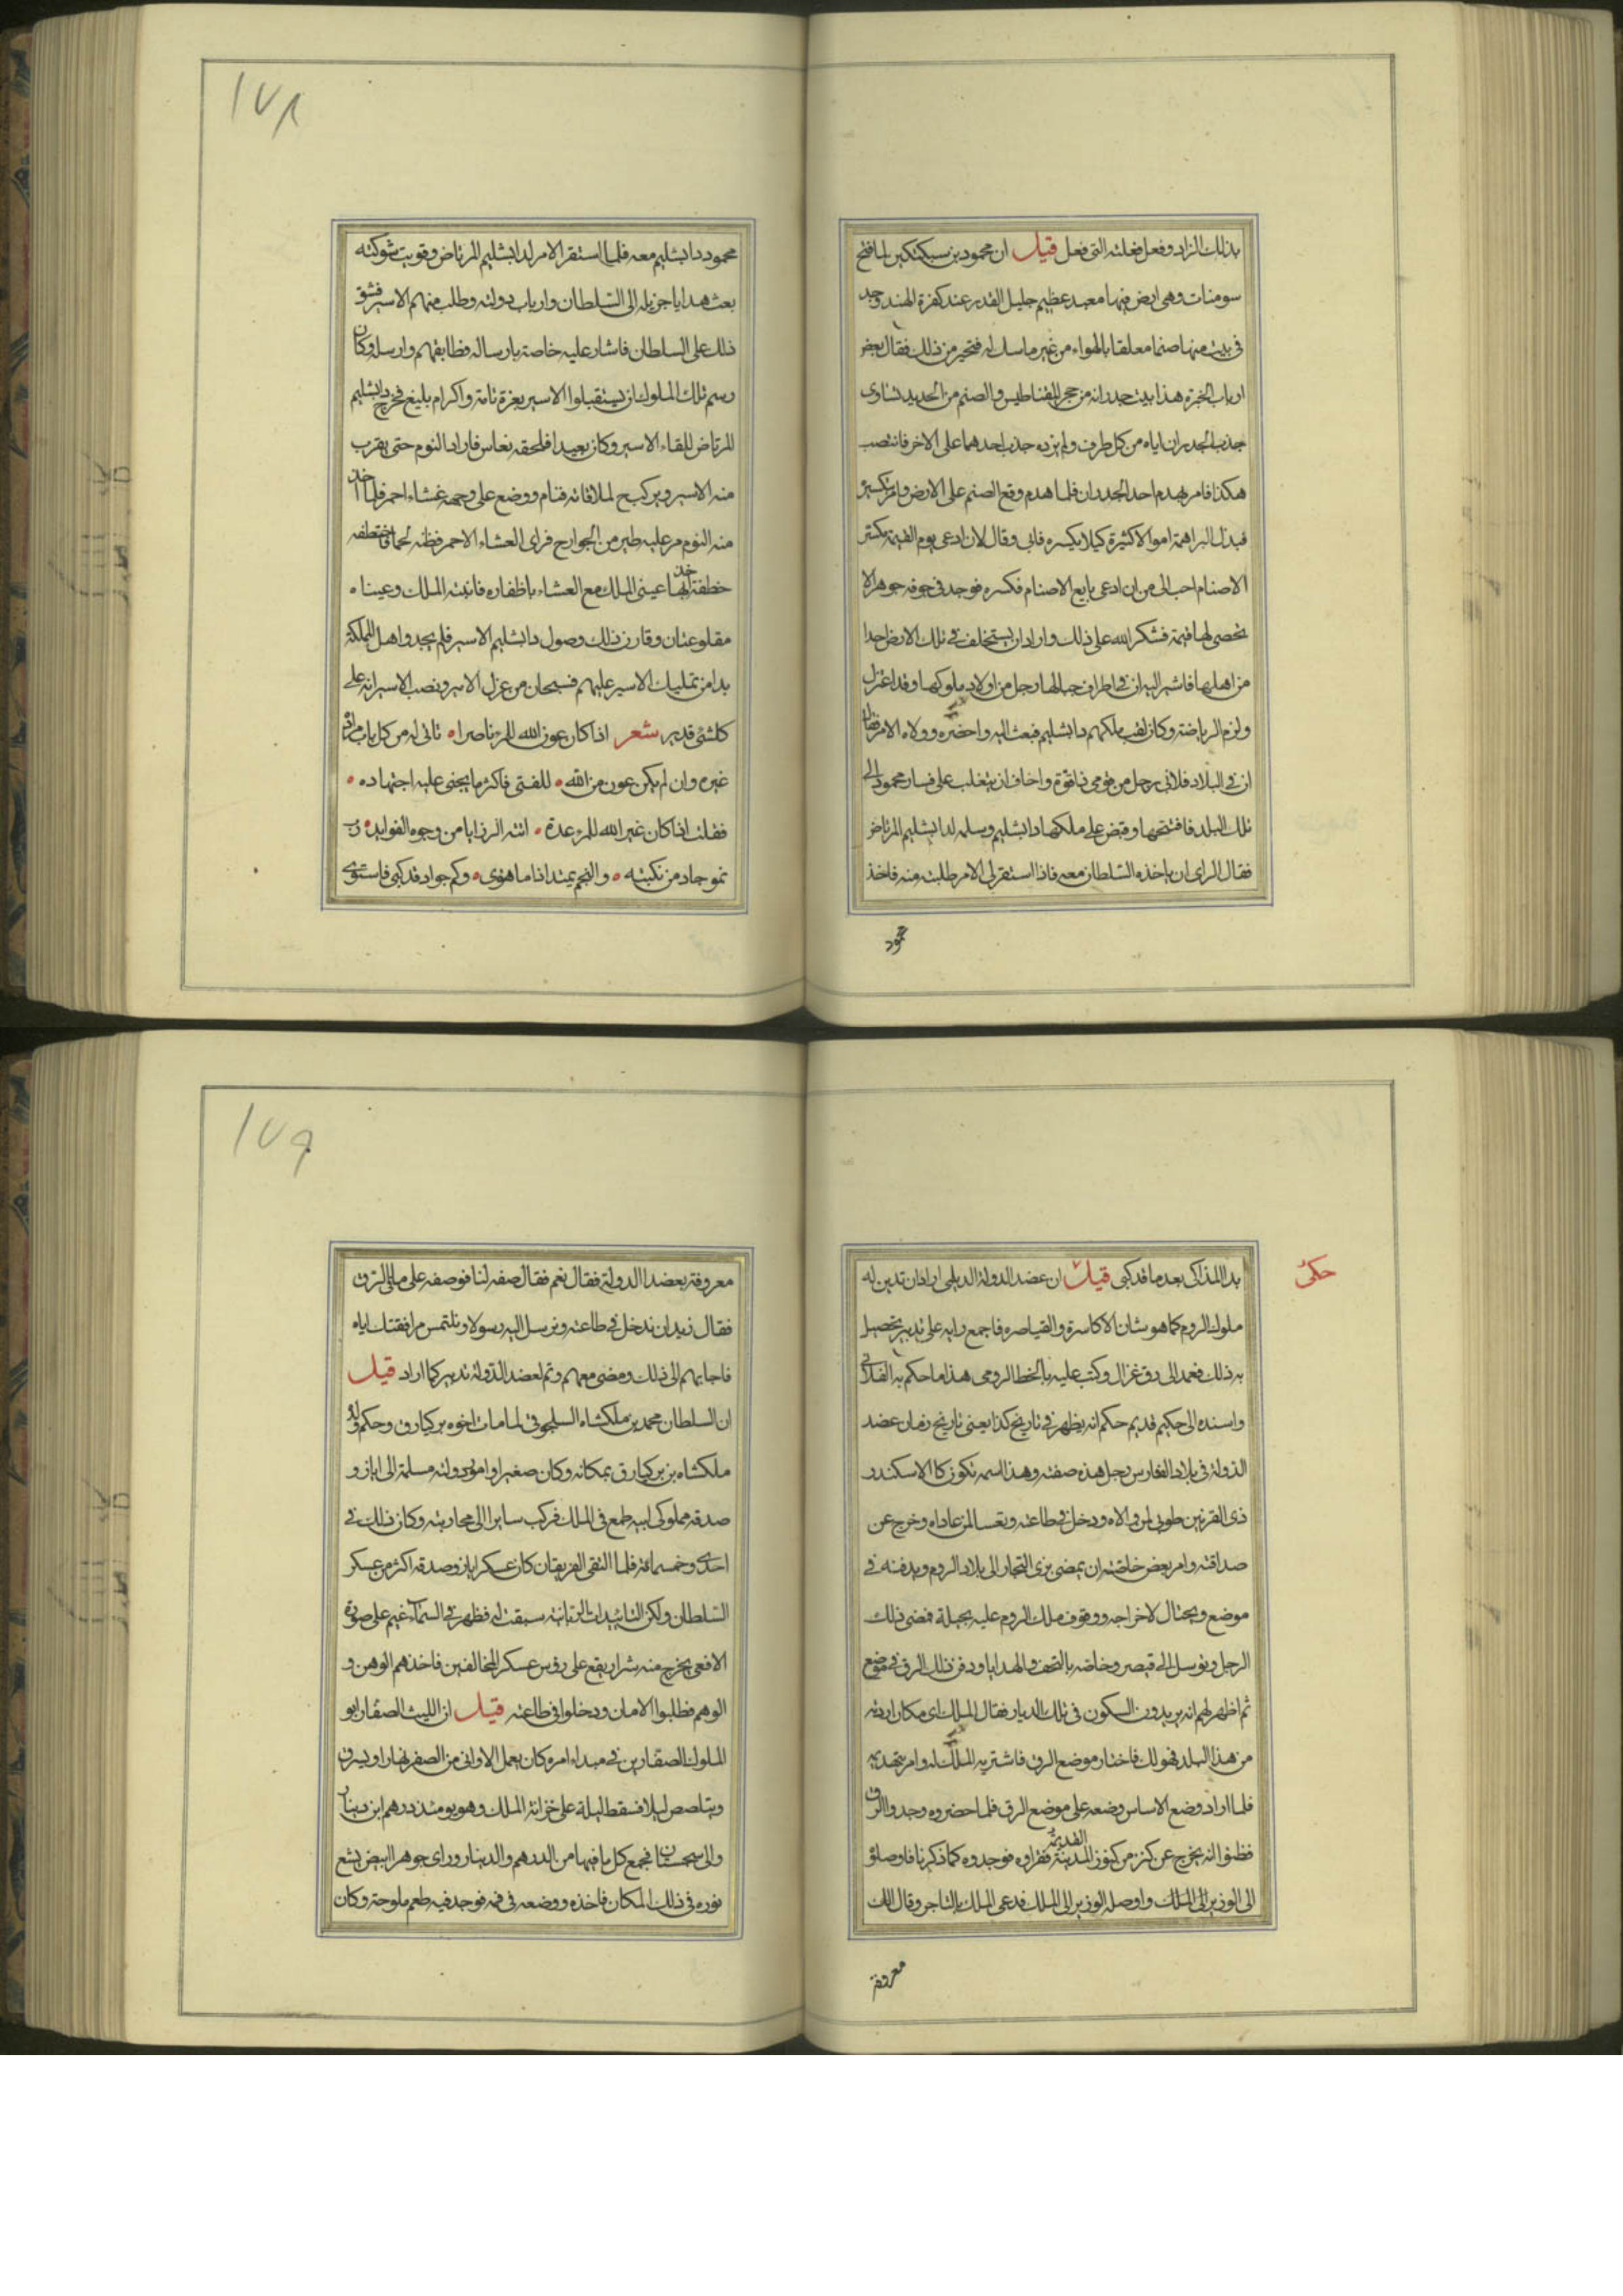 بذلك الزاد وفعل فعلته التى فعل قيل ان محمود بن سبكتكين لما فتح
سومنات وهى ارض فيها معبد عظيم جليل القدر عند كفرة الهند وجد
فى بيت منها صنما معلقا بالهواء من غير ماسك له فتحير من ذلك فقال بعض
ارباب الخبرة هذا بيت جدرانه من حجر المقناطيس والصنم من الحديد تساوى
جذب الجدران اياه من كل طرف ولم يزد جذب احدهما على الاخر فانتصب
هكذا فامر بهدم احد الجدران فلما هدم وقع الصنم على الارض وامر بكسره
فبذل البراهمة اموالا كثيرة كيلا يكسره فابى وقال لان ادعى يوم القيمة بكسر
الاصنام احب الى من ان ادعى بايع الاصنام فكسره فوجد فى جوفه جوهرا لا
يحصى لها قيمة فشكر الله على ذلك واراد ان يستخلف فى تلك الارض احدا
من اهلها فاشير اليه ان فى اطراف جبالها رجل من اولاد ملوكها وقد اعتزل
ولزم الرياضة وكان لقب ملكهم دابشليم فبعث اليه واحضره وولاه الامر فقال
ان فى البلاد فلانى رجل من قومى ذا قوة واخاف ان يتغلب على فسار محمود الى
تلك البلد فافتتحها وقبض على ملكها دابشليم وسلمه لدابشليم المرتاض
فقال الراى ان ياخذه السلطان معه فاذا استقر لى الامر طلبت منه فاخذ
محمود
١٧٨
محمود دابشليم معه فلما استقر الامر لدابشليم المرتاض وقويت شوكته
بعث هدايا جزيله الى السلطان وارباب دولته وطلب منهم الاسير فشق
ذلك على السلطان فاشار عليه خاصته بارساله فطابقهم وارسله وكان
رسم تلك الملوك ان يستقبلوا الاسير بعزة تامة واكرام بليغ فخرج دابشليم
المرتاض للقاء الاسير وكان بعيدا فلحقه نعاس فاراد النوم حتى يقرب
منه الاسير ويركب لملاقاته فنام ووضع على وجهه غشاء احمر فلما اخذ
منه النوم مر عليه طير من الجوارح فراى الغشاء الاحمر فظنه لحما فاختطفه
خطفة اخذ بها عينى الملك مع الغشاء باظفاره فانتبه الملك وعيناه
مقلوعتان وقارن ذلك وصول دابشليم الاسير فلم يجد اهل المملكة
بدا من تمليك الاسير عليهم فسبحان من عزل الامير ونصب الاسير انه على
كلشئ قدير شعر اذا كان عون الله للمرء ناصرا تاتى له من كل باب مراده
غيره وان لم يكن عون من الله للفتى فاكثر ما يجنى عليه اجتهاده
فقلت اذا كان غير الله للمرء عدة اتته الرزايا من وجوه الفوايد رب
نمو جاد من نكبته والنجم يمتد اذا ما هوى وكم جواد قد كبى فاستوى
حكى
بد المذاكى بعد ما قد كبى قيل ان عضد الدولة الديلمى اراد ان تدين له
ملوك الروم كما هو شان الاكاسرة والقياصره فاجمع رايه على تدبير يحصل
به ذلك فعمد الى رق غزال وكتب عليه بالخط الرومى هذا ما حكم به الفلانى
واسنده الى حكيم قديم حكم انه يظهر فى تاريخ كذا يعنى تاريخ زمان عضد
الدولة فى بلاد الفارس رجل هذه صفته وهذا اسمه تكون كالاسكندر
ذى القرنين طوبى لمن والاه ودخل فى طاعته وتعسا لمن عاداه وخرج عن
صداقته وامر بعض خاصته ان يمضى بزى التجار الى بلاد الروم ويدفنه فى
موضع ويحتال لاخراجه ووقوف ملك الروم عليه بحيلة فمضى ذلك
الرجل وتوسل الى قيصر وخاصه بالتحف والهدايا ودفن ذلك الرق فى موضع
ثم اظهر لهم انه يريد السكون فى تلك الديار فقال الملك اى مكان اردته
من هذا البلد فهو لك فاختار موضع الرق فاشتريه الملك له وامر بتجديده
فلما اراد وضع الاساس وضعه على موضع الرق فلما حضروه وجدوا الرق
فظنوا انه يخرج عن كنز من كنوز المدينة القديمة فقراوه فوجدوه كما ذكرنا فاوصلوه
الى الوزير الى الملك واوصله الوزير الى الملك فدعى الملك بالتاجر وقال الك
معروفة
١٧٩
معروفة بعضد الدولة فقال نعم فقال صفه لنا فوصفه على ما فى الرق
فقال نريد ان ندخل فى طاعته ونرسل اليه رسولا ونلتمس مرافقتك اياه
فاجابهم الى ذلك ومضى معهم وتم لعضد الدولة تدبير كما اراد قيل
ان السلطان محمد بن ملكشاه السلجوقى لما مات اخوه بركيارق وحكم ولد
ملكشاه بن بركيارق بمكانه وكان صغيرا وامور دولته مسلمة الى اياز و
صدقه مملوكى ابيه طمع فى الملك فركب سايرا الى محاربته وكان ذلك فى
احدى وخمسمائة فلما التقى الفريقان كان عسكر اياز وصدقه اكثر من عسكر
السلطان ولكن التائيدات الربانيه سبقت له فظهر فى السماء غيم على صورة
الافعى يخرج منه شرار يقع على رؤس عسكر المخالفين فاخذهم الوهن و
الوهم فطلبوا الامان ودخلوا فى طاعته قيل ان الليث الصفار ابو
الملوك الصفارين فى مبداء امره كان يعمل الاوانى من الصفر نهارا ويسرق
ويتلصص ليلا فسقط ليلة على خزانة الملك وهو يومئذ درهم ابن دينار
والى سجستان فجمع كل ما فيها من الدرهم والدينار وراى جوهرا ابيض يشع
نوره فى ذلك المكان فاخذه ووضعه فى فمه فوجد فيه طعم ملوحة وكان